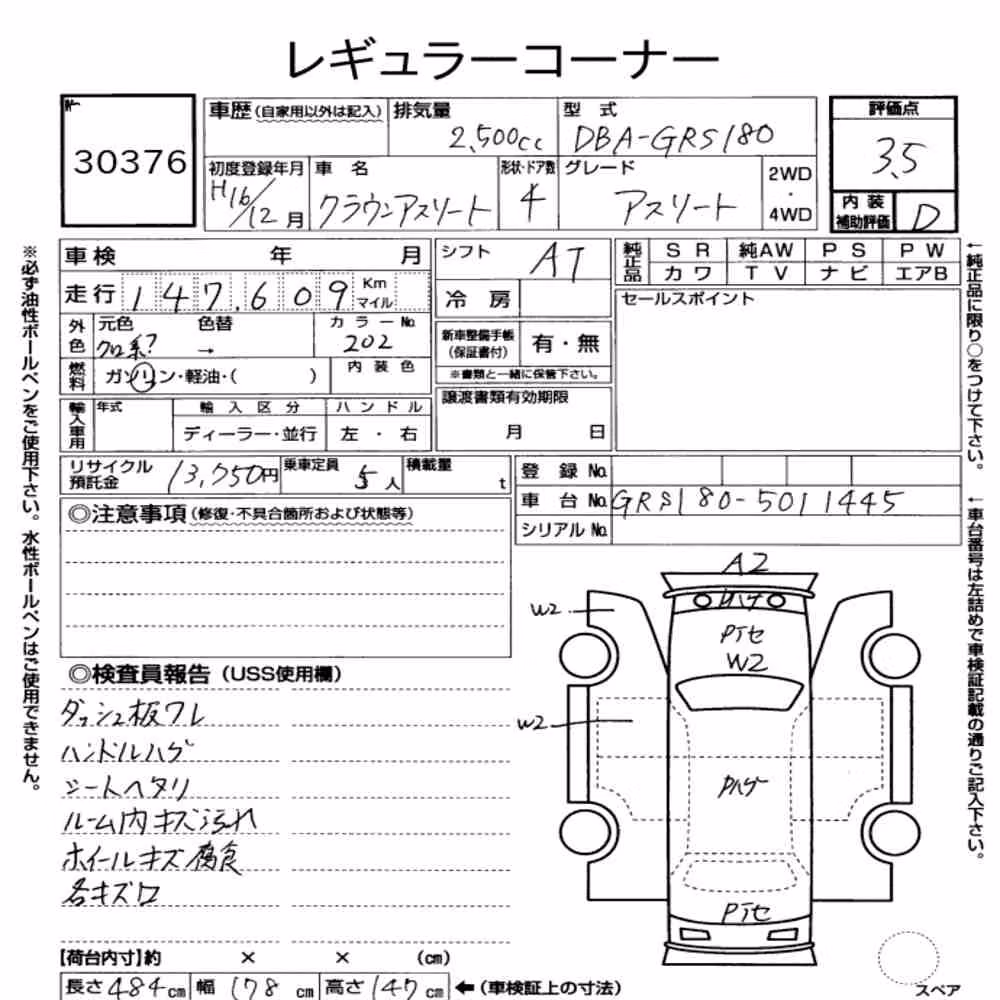 レギュラーコーナー
30376
車歴 (自家用以外は記入)
排気量
2,500cc
型 式
DBA-GRS180
評価点
3.5
初度登録年月
H16/12 月
車 名
クラウンアスリート
形状・ドア数
4
グレード
アスリート
2WD
・
4WD
内 装
補助評価
D
車検 年 月
シフト
AT
純正品
SR 純AW PS PW
カワ TV ナビ エアB
走行 147,609 Km
マイル
冷 房
セールスポイント
外色
元色 色替
クロ系? →
カラーNo.
202
新車整備手帳
(保証書付)
有・無
※書類と一緒に保管下さい。
燃料
ガソリン・軽油・( )
内 装 色
譲渡書類有効期限
月 日
輸入車用
年式
輸 入 区 分
ディーラー・並行
ハ ン ド ル
左 ・ 右
リサイクル
預託金
13,750円
乗車定員
5 人
積載量
t
登 録 No.
車 台 No. GRS180-5011445
シリアル No.
◎注意事項 (修復・不具合箇所および状態等)
◎検査員報告 (USS使用欄)
ダッシュ板ワレ
ハンドルハゲ
シートヘタリ
ルーム内キズ汚れ
ホイールキズ腐食
各キズ凹
A2
Uハゲ
Pアセ
W2
W2
W2
Pハゲ
Pアセ
スペア
【荷台内寸】約 × × (cm)
長さ 484 cm 幅 178 cm 高さ 147 cm ←(車検証上の寸法)
※必ず油性ボールペンをご使用下さい。水性ボールペンはご使用できません。
←純正品に限り○をつけて下さい。
←車台番号は左詰めで車検証記載の通りご記入下さい。